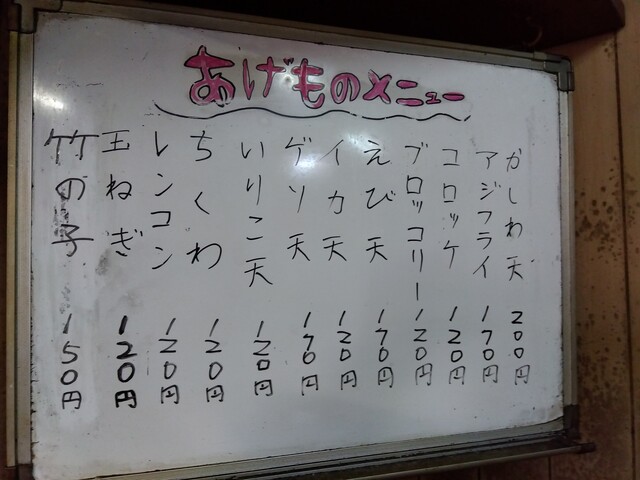 あげものメニュー
かしわ天 200円
アジフライ 170円
コロッケ 120円
ブロッコリー 120円
えび天 170円
イカ天 120円
ゲソ天 170円
いりこ天 120円
ちくわ 120円
レンコン 120円
玉ねぎ 120円
竹の子 150円